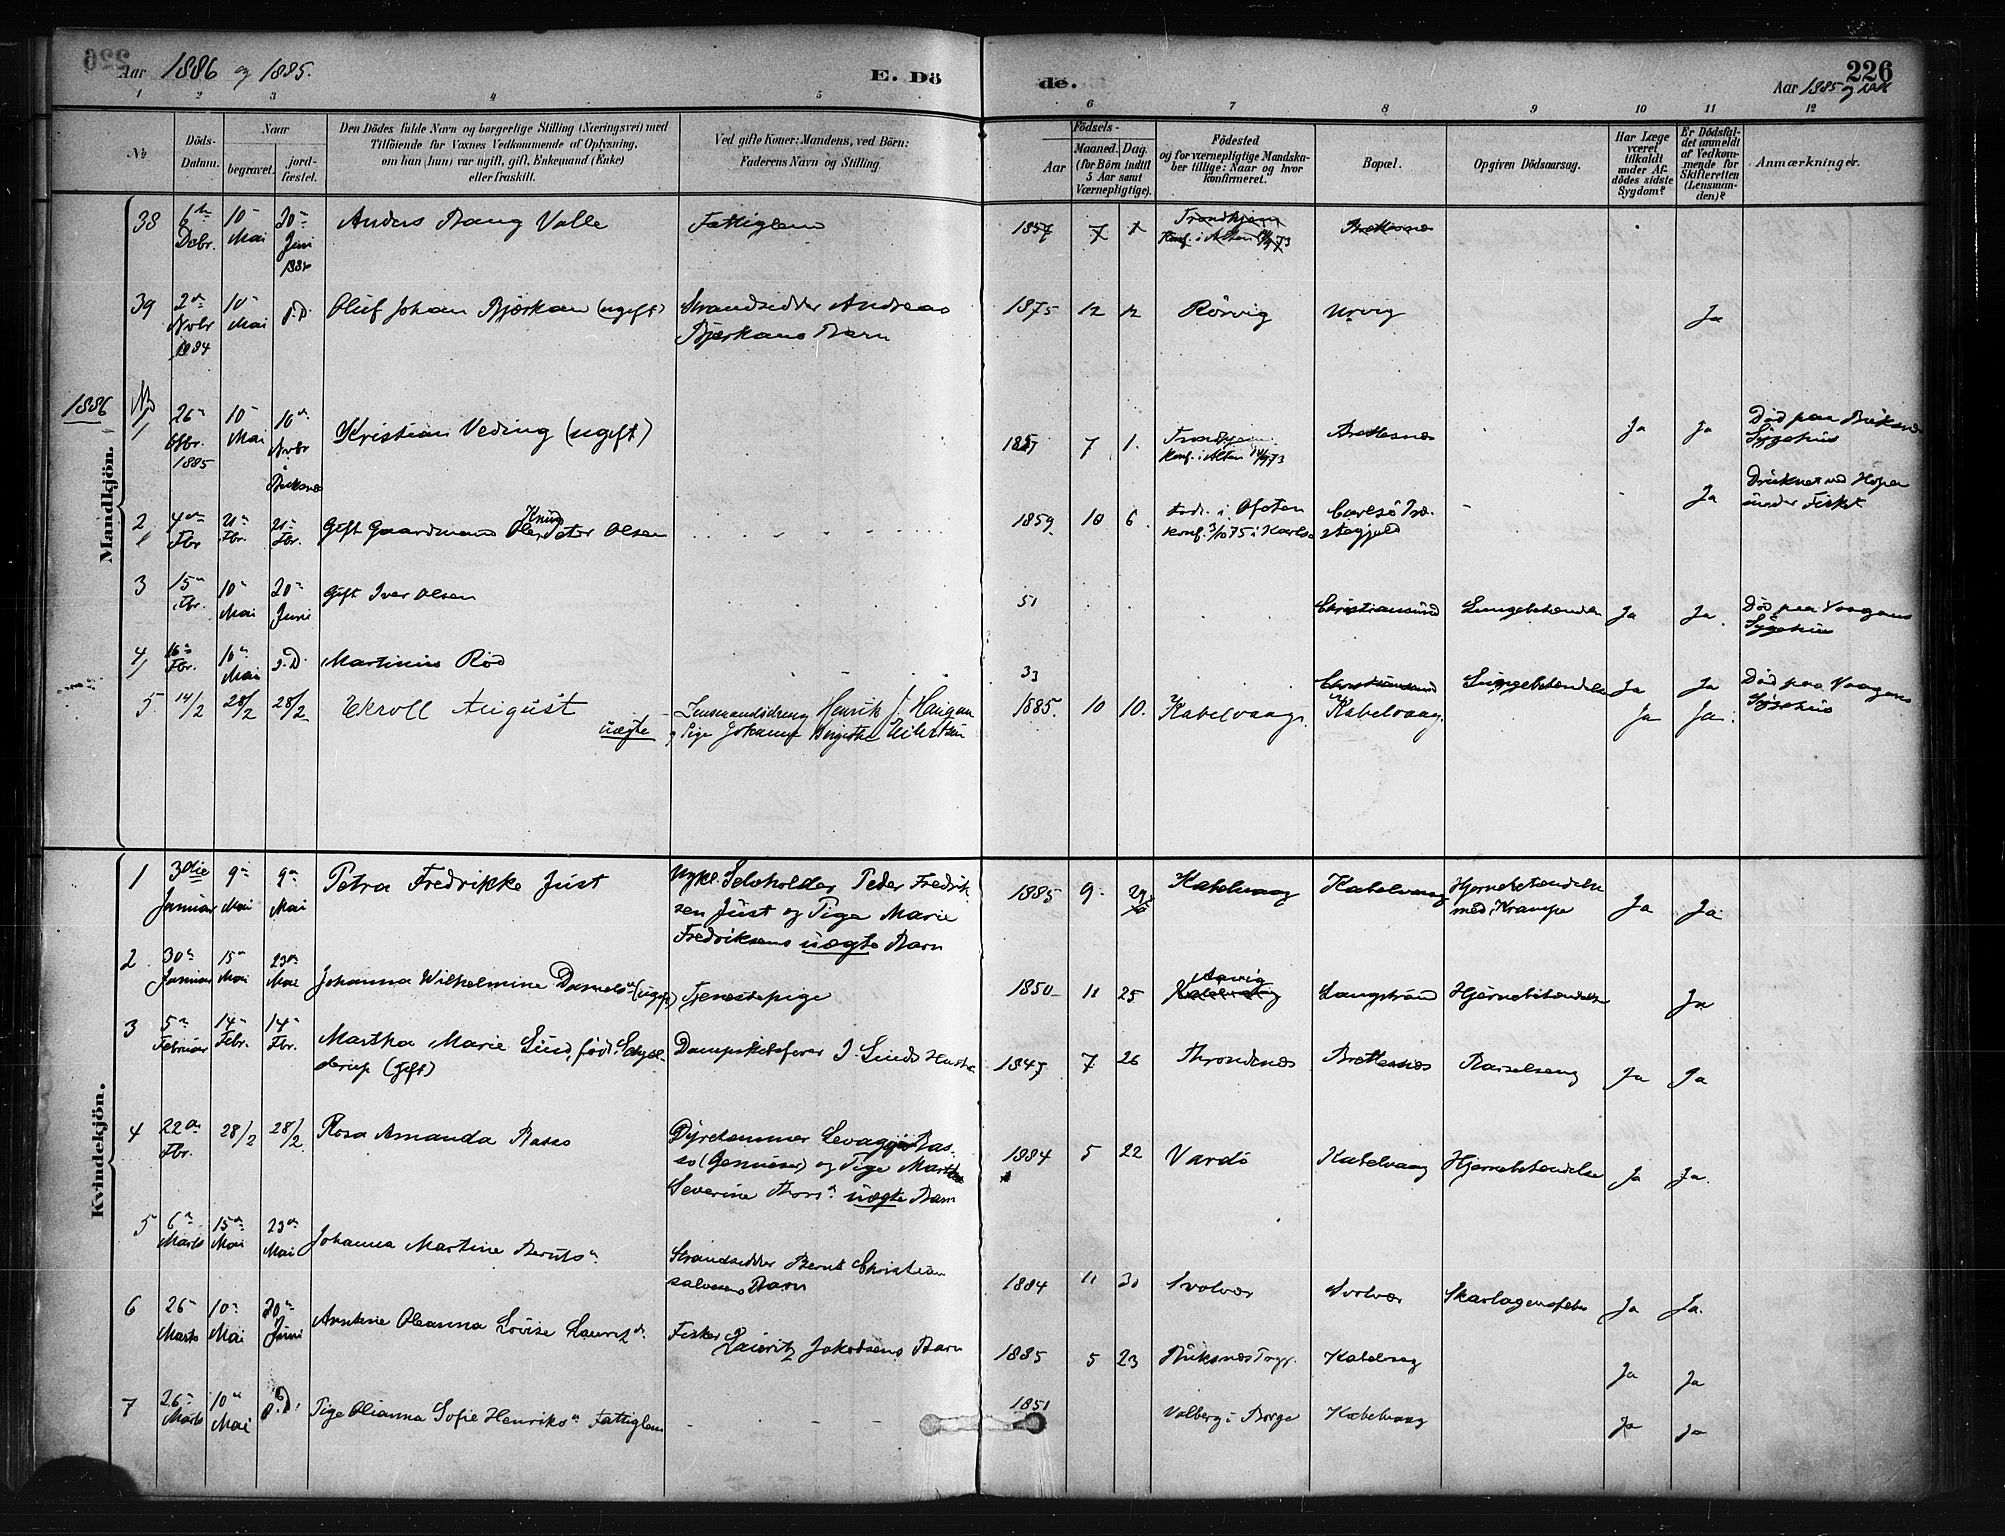 Aar 1886 og 1885.
E. Dö
de.
226
Aar 1885 og 1886
1 2 3 4 5 6 7 8 9 10 11 12
No
Döds-Datum.
Naar
begravet.
jordfæstet.
Den Dödes fulde Navn og borgerlige Stilling (Næringsvei) med
Tilföiende for Voxnes Vedkommende af Oplysning,
om han (hun) var ugift, gift, Enkemand (Enke)
eller fraskilt.
Ved gifte Koner: Mandens, ved Börn:
Faderens Navn og Stilling.
Födsels-
Aar
Maaned. Dag.
(for Börn indtil
5 Aar samt
Værnepligtige).
Födested
og for værnepligtige Mandska-
ber tillige: Naar og hvor
konfirmeret.
Bopæl.
Opgiven Dödsaarsag.
Har Læge
været
tilkaldt
under Af-
dödes sidste
Sygdom?
Er Dödsfal-
det anmeldt
af Vedkom-
mende for
Skifteretten
(Lensman-
den)?
Anmærkninger.
Mandkjön.
38 6te Decbr. 10 Mai 20 Juni 1886 Anders Bang Valle Fattiglem 1857 7 1 Trondhjem Konf. i Alten 73 Brettesnæs
39 2den Novbr 1884 10 Mai s.D. Oluf Johan Bjerkan (ugift) Strandsidder Andreas
Bjerkans Barn 1875 12 12 Rörvig Urvig Ja
1886
No
1 26 Octbr. 1885 10 Mai 10 Novbr Buksnæs Kristian Veding (ugift) 1857 7 1. Trondhjem Konf. i Alten 73 Brettesnæs Ja Ja Död paa Buksnæs
Sygehus
2 4 Fbr 21 Fbr. 21 Fbr. Gift Gaardmand Knud Peter Olsen 1859 10 6. Födt i Ofoten
Konf. 3/10 75 i Karlsö Ja Druknet ved Hopen
under Fisket
3 15 Fbr. 10 Mai 20 Juni Gift Iver Olsen 51 Christiansund Lungebetændelse Ja Ja. Död paa Vaagans
Sygehus
4 16 Fbr. 10 Mai s.D. Martinus Röd 33 Christiansund Lungebetændelse Ja Ja Död paa Vaagans
Sygehus
5 14/2 28/2 28/2 Ekroll August uægte Lensmandsdreng Henrik J. Haugan
og Pige 1885. 10 10. Kabelvaag. Kabelvaag. Ja Ja.
Kvindekjön.
1 3die Januar 9 Mai 9 Mai Petra Fredrikke Just Selvholder Peder Fredrik-
sen Just og Pige Marie
Fredriksens uægte Barn 1885 9. 29 Kabelvaag Kabelvaag Hjernebetændelse
med Krampe Ja Ja
2 30 Januar 15 Mai 23 Mai Johanna Wilhelmine Daniels (ugift) Tjenestepige 1850 11 25 Langstrand Hjernebetændelse Ja
3 5 Februar 14 Febr. 14 Fbr. Martha Marie Lund, föd Schjel-
derup (gift) Dampskibsförer J. Lunds Hustru 1847 7 26 Throndenæs Brettesnæs Barselseng Ja Ja
4 22 Fbr. 28/2 28/2 Rosa Amanda Basso Dyretæmmer Bas-
so (Genueser) og Pige Martha
Severine Thors uægte Barn 1884 5 22 Vardö Kabelvaag Hjernebetændelse Ja Ja.
5 6 Marts 15 Mai 23 Mai Johanna Martine Bernts Strandsidder Bernt Christian
Barn 1884 11 30 Svolvær Svolvær Skarlagensfeber Ja Ja.
6 26 Marts 10 Mai 20 Juni Anntine Oleanna Lovise Lauritz Fisker Lauritz Jakobsens Barn 1885 5 23 Kabelvaag Ja Ja
7 26 Marts 10 Mai s.D. Pige Olianna Sofie Henriks Fattiglem 1851 Valberg i Borge Kabelvaag Ja Ja